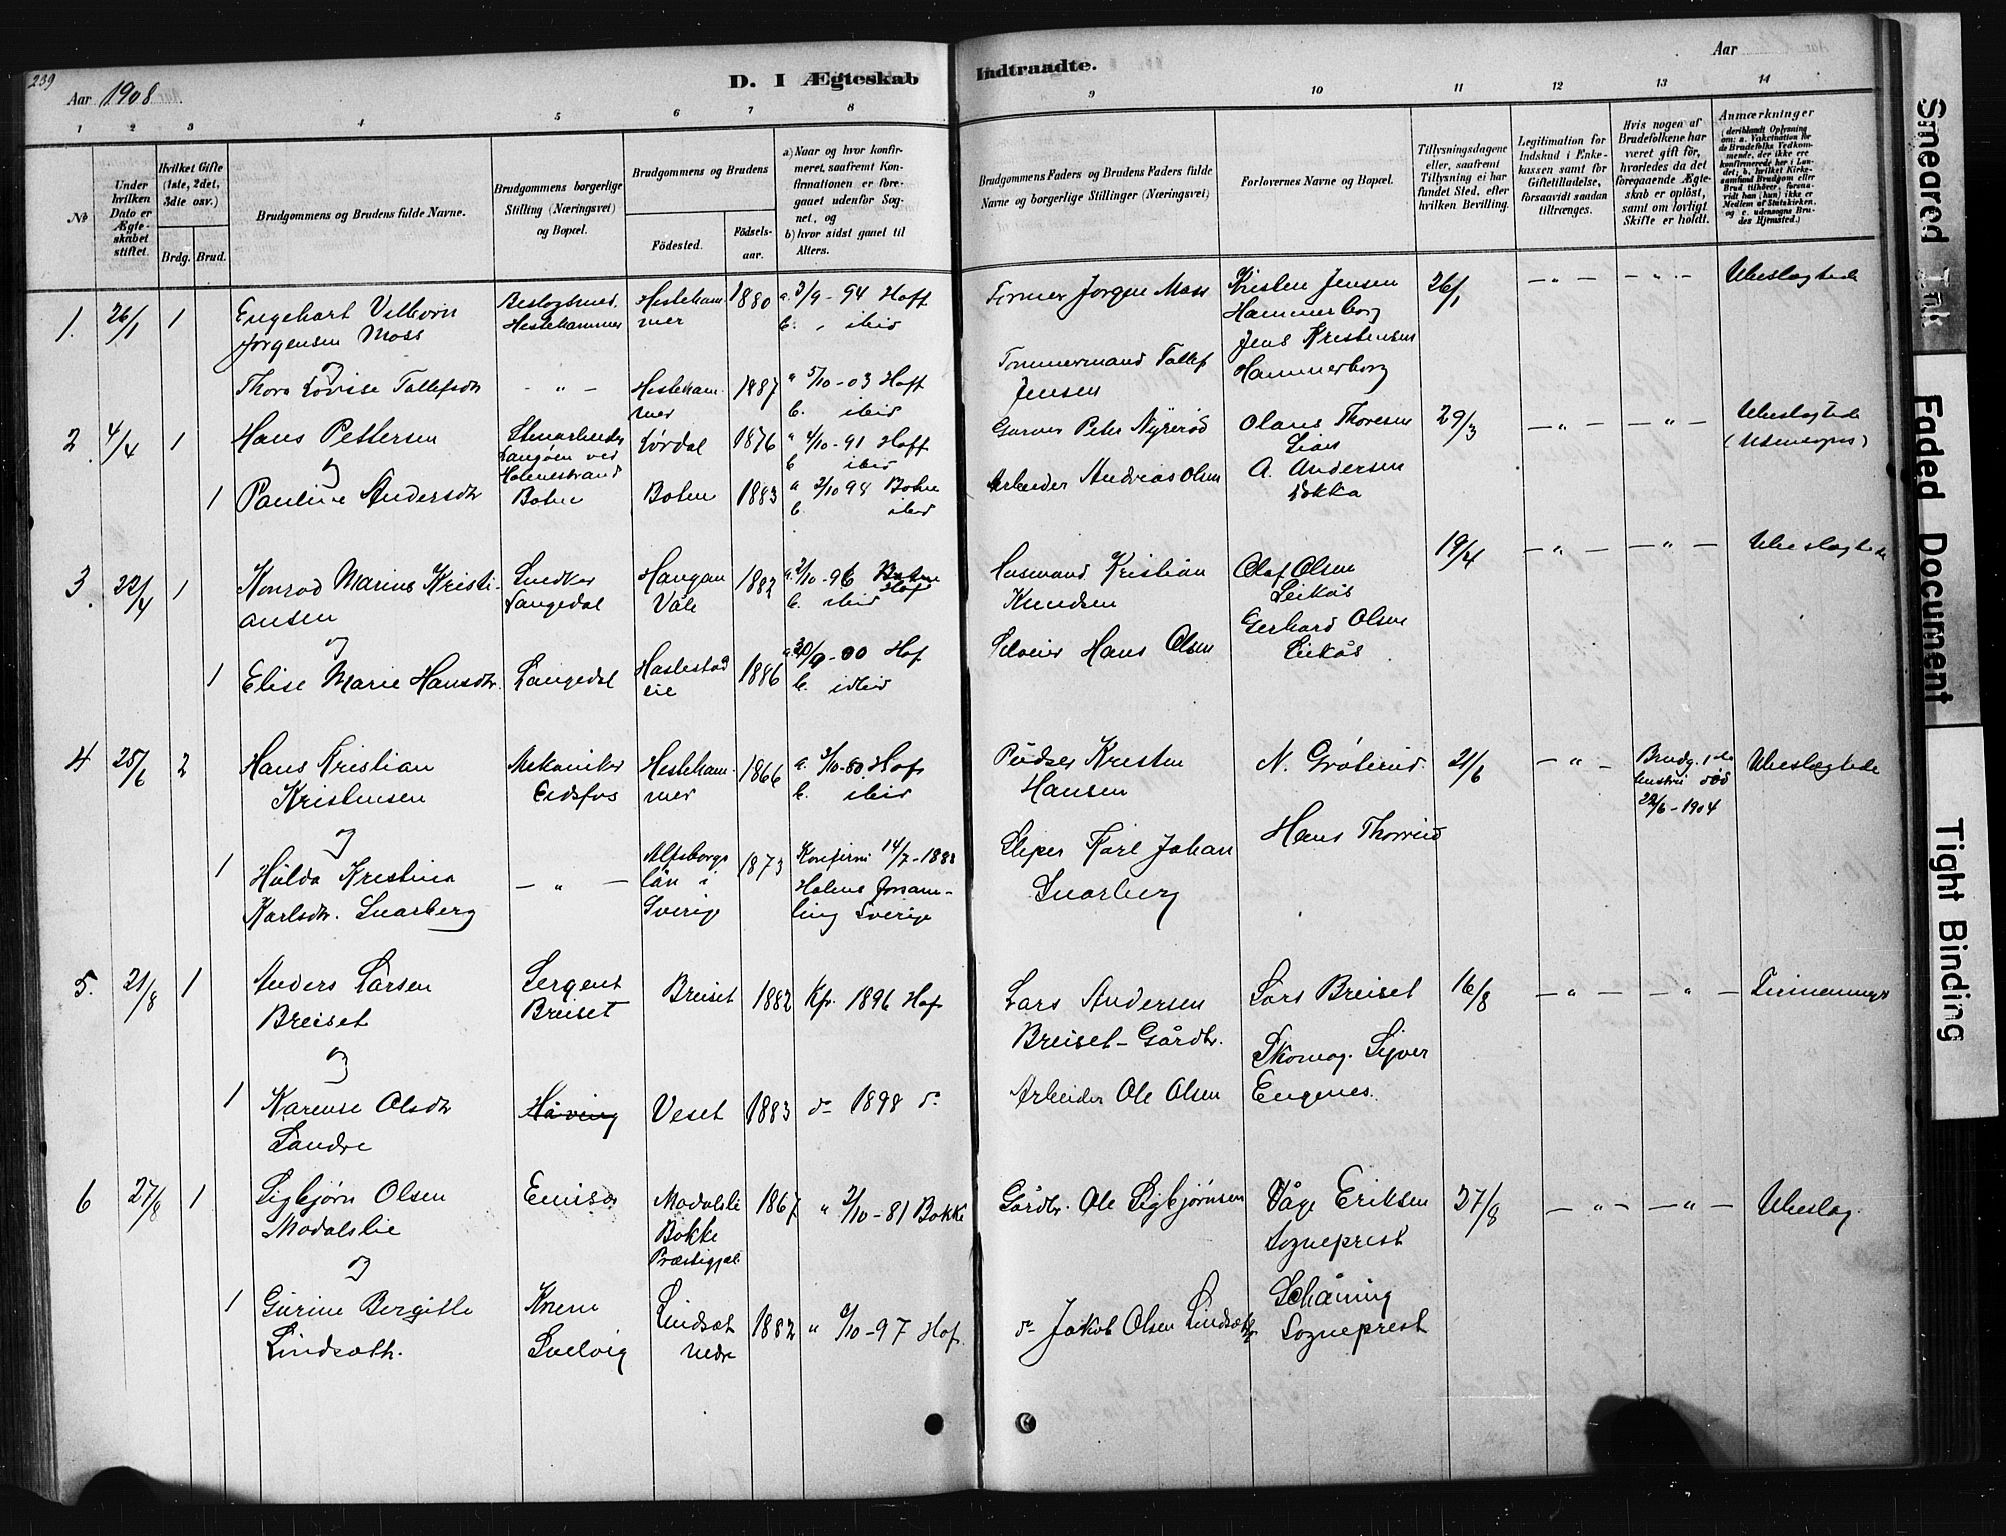 239
Aar 1908.
D. I Ægteskab
Indtraadte.
Aar
1 2 3 4 5 6 7 8 9 10 11 12 13 14
No
Under hvilken Dato er Ægteskabet stiftet.
Hvilket Gifte (1ste, 2det, 3die osv.)
Brdg. Brud.
Brudgommens og Brudens fulde Navne.
Brudgommens borgerlige Stilling (Næringsvei) og Bopæl.
Brudgommens og Brudens
Fødested.
Fødselsaar.
a) Naar og hvor konfirmeret, saafremt Konfirmationen er foregaaet udenfor Sognet, og
b) hvor sidst gaaet til Alters.
Brudgommens Faders og Brudens Faders fulde Navne og borgerlige Stillinger (Næringsvei)
Forlovernes Navne og Bopæl.
Tillysningsdagene eller, saafremt Tillysning ei har fundet Sted, efter hvilken Bevilling.
Legitimation for Indskud i Enkekassen samt for Giftetilladelse, forsaavidt saadan tiltrænges.
Hvis nogen af Brudefolkene har været gift før, hvorledes da det foregaaende Ægteskab er opløst, samt om lovligt Skifte er holdt.
Anmærkninger
(deriblandt Oplysning om: a. Vakcination for de Brudefolks Vedkommende, der ikke ere konfirmerede her i Landet; b. hvilket Kirkesamfund Brudgom eller Brud tilhører, forsavidt han (hun) ikke er Medlem af Statskirken, og c. udensogns Brudes Hjemsted.)
1. 26/1 1
Engehart Vilhorn
Jørgensen Moss
Hestehammer
Hestehammer
1880
a. 3/9 - 94 Hoff
b. " ibid
Jørgen Moss
Kristen Jensen
Hammerborg
26/1
- " -
- " -
Ubeslægtede
og
Thora Lovise Tollefsdtr
- " -
Hestehammer
1887
a 5/10 - 03 Hoff
b. ibid
Tømmermand Tollef
Jensen
Jens Kristensen
Hammerborg
2. 4/4 1
Hans Pettersen
Langøen ved
Holmestrand
Lørdal
1876
a 4/10 - 91 Hoff
b ibid
Garver Peter Nyrerød
Olaus Thoresen
Lian
29/3
- " -
- " -
Ubeslægtede
(Udensogns)
og
1
Pauline Andersdtr
Botne
Botne
1883
a 2/10 98 Botne
b. ibid
Arbeider Andreas Olsen
A. Andersen
Dokka
3. 22/4 1
Konrad Marius Kristiansen
Snedker
Langedal
Haugan
Våle
1882
a. 2/10 - 96 Botne Hof
b. ibid
Husmand Kristian
Knudsen
Olaf Olsen
Leikås
19/4
- " -
- " -
Ubeslægtede
og
1
Elise Marie Hansdtr.
Langedal
Haslestad
eie
1886
a. 30/9 - 00 Hof
b. ibid
Selveier Hans Olsen
Gerhard Olsen
Leikås
4 28/6 2
Hans Kristian
Kristensen
Mekaniker
Eidsfos
Hestehammer
1866
a. 3/10 - 80. Hof
b. ibid
Pudser Kristen
Hansen
N. Grøterud.
21/6
- " -
Brudg. 1ste
hustru død
22/6 - 1904
Ubeslægtede
og
1
Hulda Kristina
Karlsdtr. Snarberg
- " -
Alfsborgs
län i
Sverige
1873
Konfirm 14/7 - 1888
Holens forsamling Sverige
Sliper Karl Johan
Snarberg
Hans Thorrud
5. 21/8 1
Anders Larsen
Breiset
Sergent
Breiset
Breiset
1882
Kf. 1896 Hof
Lars Andersen
Breiset - Gårdbr.
Lars Breiset
16/8
- " -
- " -
og
1
Karense Olsdtr
Sandre
Håving
Veset
1883
do 1898 do
Arbeider Ole Olsen
Skomag. Sigver
Engenes.
6 27/8 1
Sigbjørn Olsen
Modalslie
Emissær
Modalsli
Bokke
Præstegjæl
1867
" 2/10 - 81 Bokke
Gårdbr. Ole Sigbjørnsen
Våge Eriksen
Sogneprest
27/8
- " -
- " -
Ubeslæg.
og
1
Gurine Bergitte
Lindsæth.
Svelvig
Lindsæt
nedre
1882
" 3/10 - 97 Hof.
do Jakob Olsen Lindsæth
Schåning
Sogneprest
Smeared Ink
Faded Document
Tight Binding